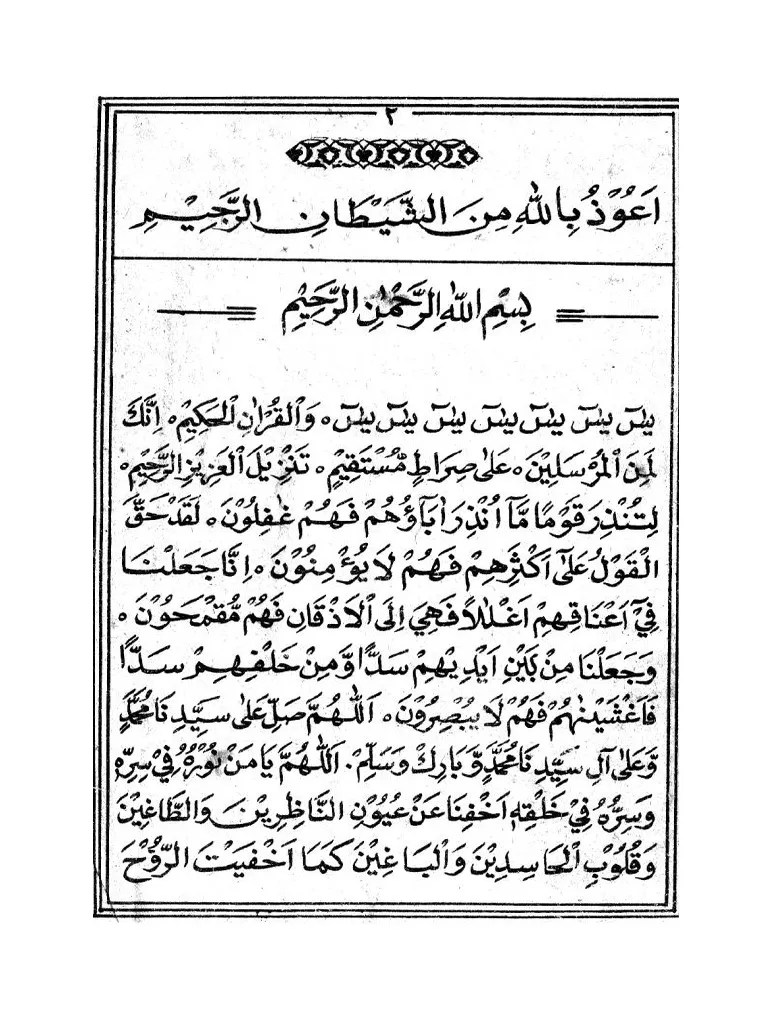 ٢
اَعُوْذُ بِاللّٰهِ مِنَ الشَّيْطَانِ الرَّجِيْمِ
بِسْمِ اللّٰهِ الرَّحْمٰنِ الرَّحِيْمِ
يٰسٓ يٰسٓ يٰسٓ يٰسٓ يٰسٓ يٰسٓ يٰسٓ ۰ وَالْقُرْاٰنِ الْحَكِيْمِ ۰ اِنَّكَ
لَمِنَ الْمُرْسَلِيْنَ ۰ عَلٰى صِرَاطٍ مُّسْتَقِيْمٍ ۰ تَنْزِيْلَ الْعَزِيْزِ الرَّحِيْمِ ۰
لِتُنْذِرَ قَوْمًا مَّآ اُنْذِرَ اٰبَآؤُهُمْ فَهُمْ غٰفِلُوْنَ ۰ لَقَدْ حَقَّ
الْقَوْلُ عَلٰٓى اَكْثَرِهِمْ فَهُمْ لَا يُؤْمِنُوْنَ ۰ اِنَّا جَعَلْنَا
فِيْٓ اَعْنَاقِهِمْ اَغْلٰلًا فَهِيَ اِلَى الْاَذْقَانِ فَهُمْ مُّقْمَحُوْنَ ۰
وَجَعَلْنَا مِنْ بَيْنِ اَيْدِيْهِمْ سَدًّا وَّمِنْ خَلْفِهِمْ سَدًّا
فَاَغْشَيْنٰهُمْ فَهُمْ لَا يُبْصِرُوْنَ ۰ اَللّٰهُمَّ صَلِّ عَلٰى سَيِّدِنَا مُحَمَّدٍ
وَّعَلٰى آلِ سَيِّدِنَا مُحَمَّدٍ وَّبَارِكْ وَسَلِّمْ. اَللّٰهُمَّ يَا مَنْ نُوْرُهُ فِيْ سِرِّهِ
وَسِرُّهُ فِيْ خَلْقِهِ اَخْفِنَا عَنْ عُيُوْنِ النَّاظِرِيْنَ وَالطَّاغِيْنَ
وَقُلُوْبِ الْحَاسِدِيْنَ وَالْبَاغِيْنَ كَمَا اَخْفَيْتَ الرُّوْحَ